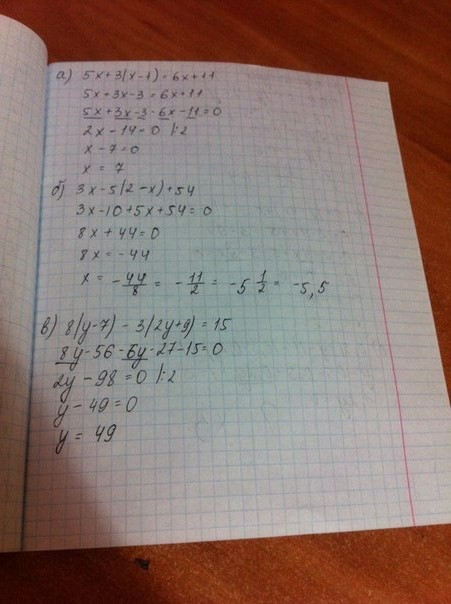 а) 5x+3(x-1)=6x+11
5x+3x-3=6x+11
5x+3x-3-6x-11=0
2x-14=0 |:2
x-7=0
x=7
б) 3x-5(2-x)+54
3x-10+5x+54=0
8x+44=0
8x=-44
x=-44/8=-11/2=-5 1/2=-5,5
в) 8(y-7)-3(2y+9)=15
8y-56-6y-27-15=0
2y-98=0 |:2
y-49=0
y=49